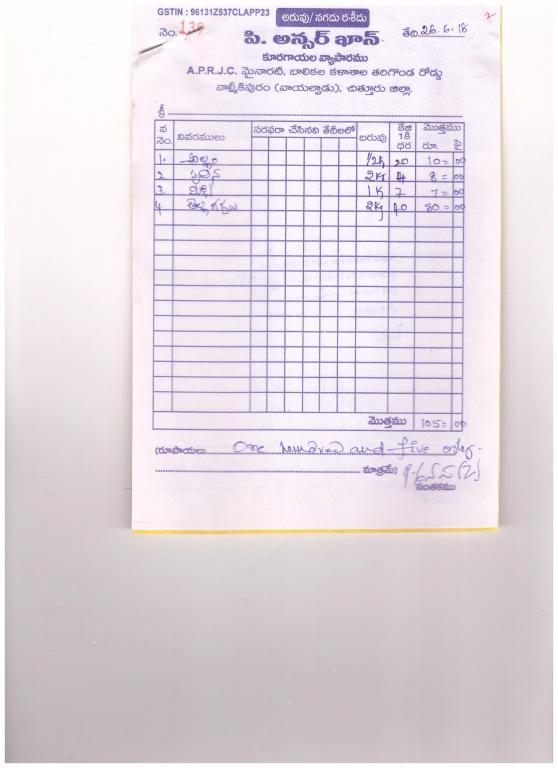 GSTIN : 96131Z537CLAPP23 అరువు/ నగదు రశీదు 2
నెం. 139 తేది 26.6.18
పి. అన్సర్ ఖాన్
కూరగాయల వ్యాపారము
A.P.R.J.C. మైనారటి, బాలికల కళాశాల తరిగొండ రోడ్డు
వాల్మీకిపురం (వాయల్పాడు), చిత్తూరు జిల్లా.
శ్రీ
వ నెం. వివరములు సరఫరా చేసినవి తేదీలలో బరువు కేజి 1కి ధర మొత్తము రూ. పై
1. అల్లం 1/2Kg 20 10=00
2 పుదిన 2Kg 4 8=00
3. 1Kg 7 7=00
4 2Kg 40 80=00
మొత్తము 105=00
(రూపాయలు One hundred and five only.
మాత్రమే)
సంతకము